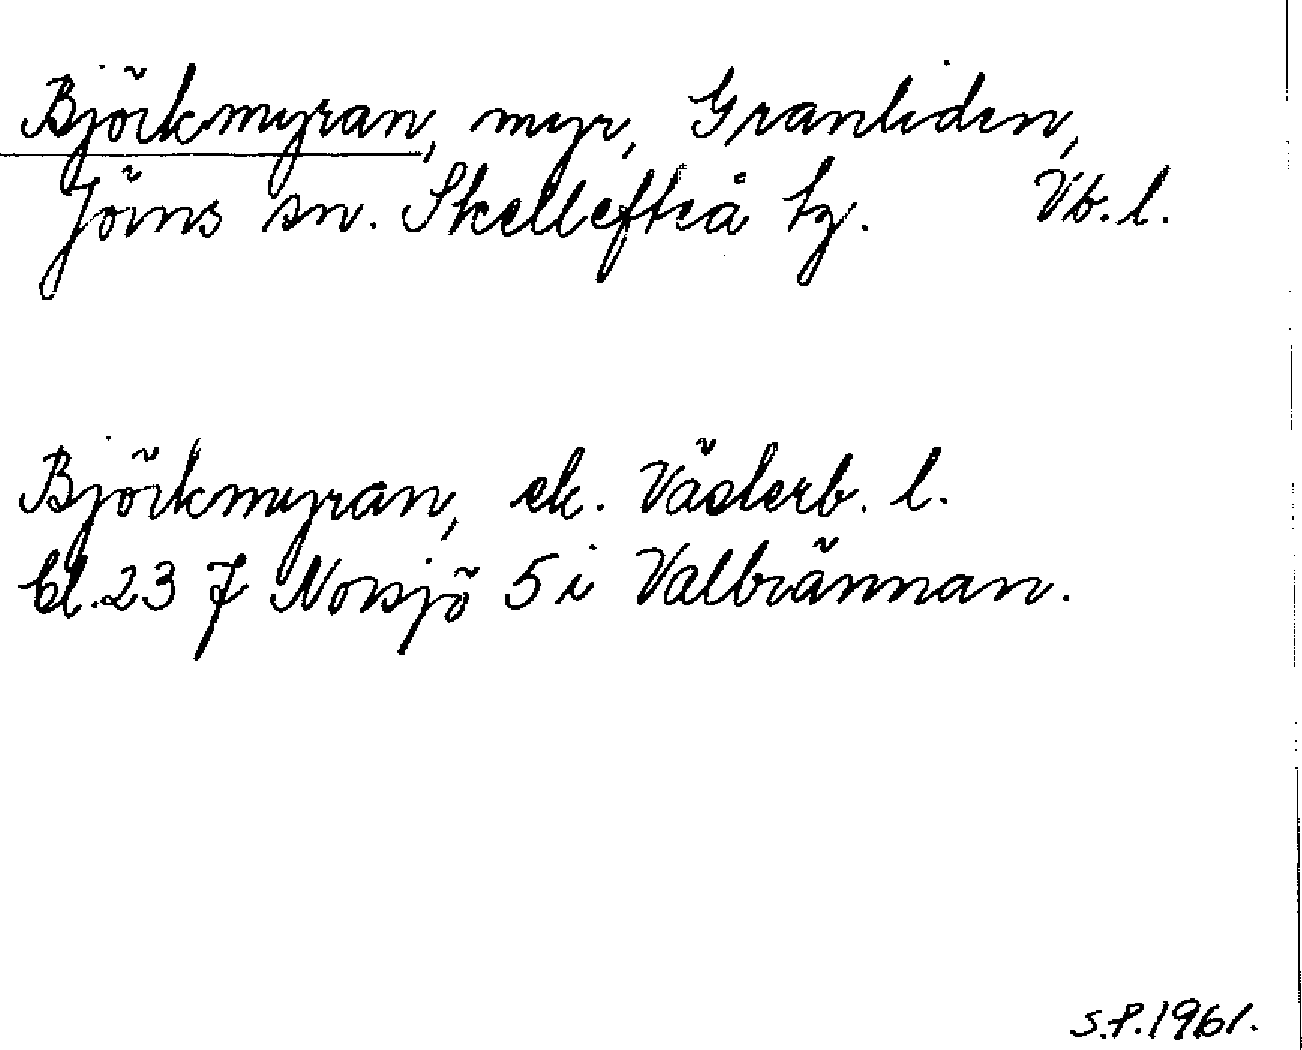 Björkmyran, myr, Granliden,
Jörns sn. Skellefteå tg. Vb. l.
Björkmyran, ek. Västerb. l.
bl. 23 J Norsjö 5 i Valbrännan.
S.P. 1961.